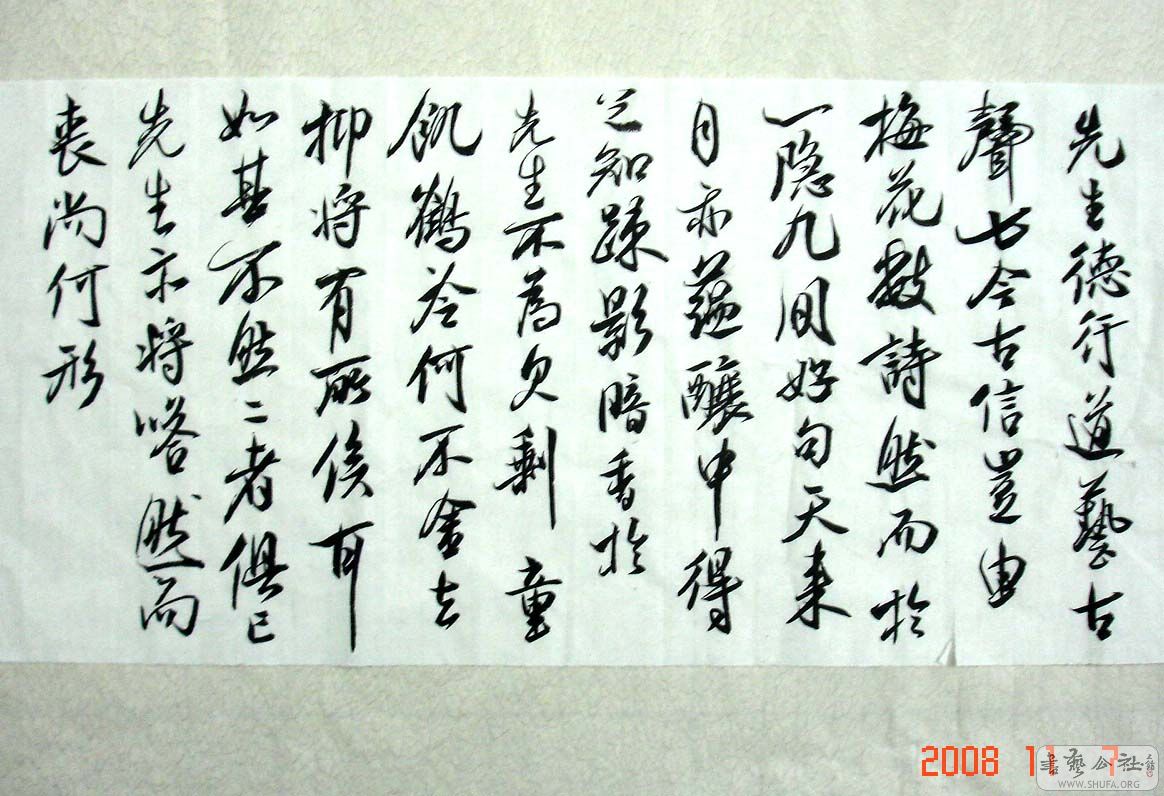 先生德行道藝古
聲七今古信豈由
梅花數詩然而於
一隐九间好句天来
月亦蕴釀中得
之知疎影暗香於
先生不為欠剩 童
飢鶴冷何不舍去
抑将有所俟耳
如其不然二者俱已
先生亦将嗒然而
喪尚何形
2008 11 7
書藝公社
WWW.SHUFA.ORG